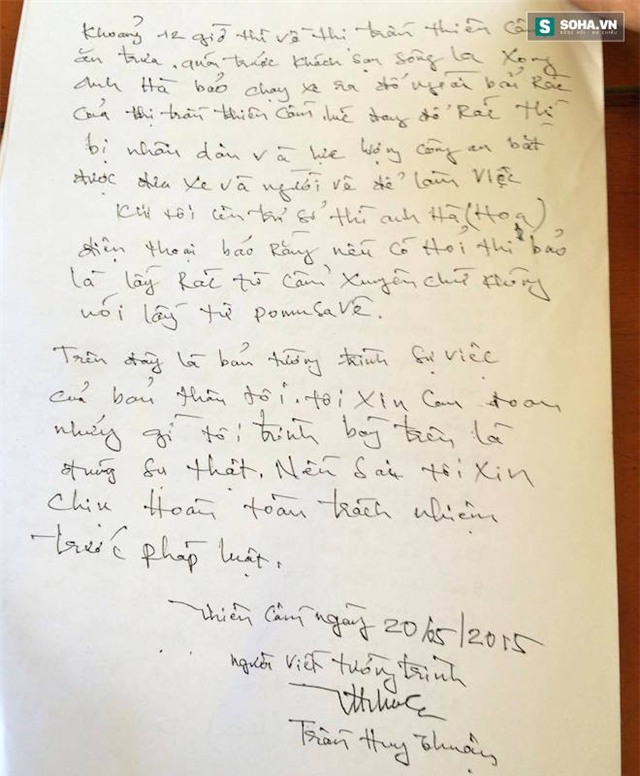 SOHA.VN
Khoảng 12 giờ thì về thị trấn thiên Cầm
ăn trưa. quán trước khách sạn sông la Xong
Anh Hà bảo chạy xe ra đổ ngoài bãi Rác
của thị trấn thiên Cầm. lúc đang đổ Rác thì
bị nhân dân và lực lượng công an bắt
được đưa xe và người về để làm việc
Khi tôi lên trụ sở thì anh Hà (Hoa)
điện thoại báo rằng nếu có Hỏi thì bảo
là lấy Rác từ Cẩm Xuyên chứ không
nói lấy từ pomusa về.
Trên đây là bản tường trình sự việc
của bản thân tôi. tôi xin cam đoan
những gì tôi trình bày trên là
đúng sự thật. Nếu sai tôi xin
chịu Hoàn toàn trách nhiệm
trước pháp luật.
thiên Cầm ngày 20/05/2015
người viết tường trình
Trần Huy thuận